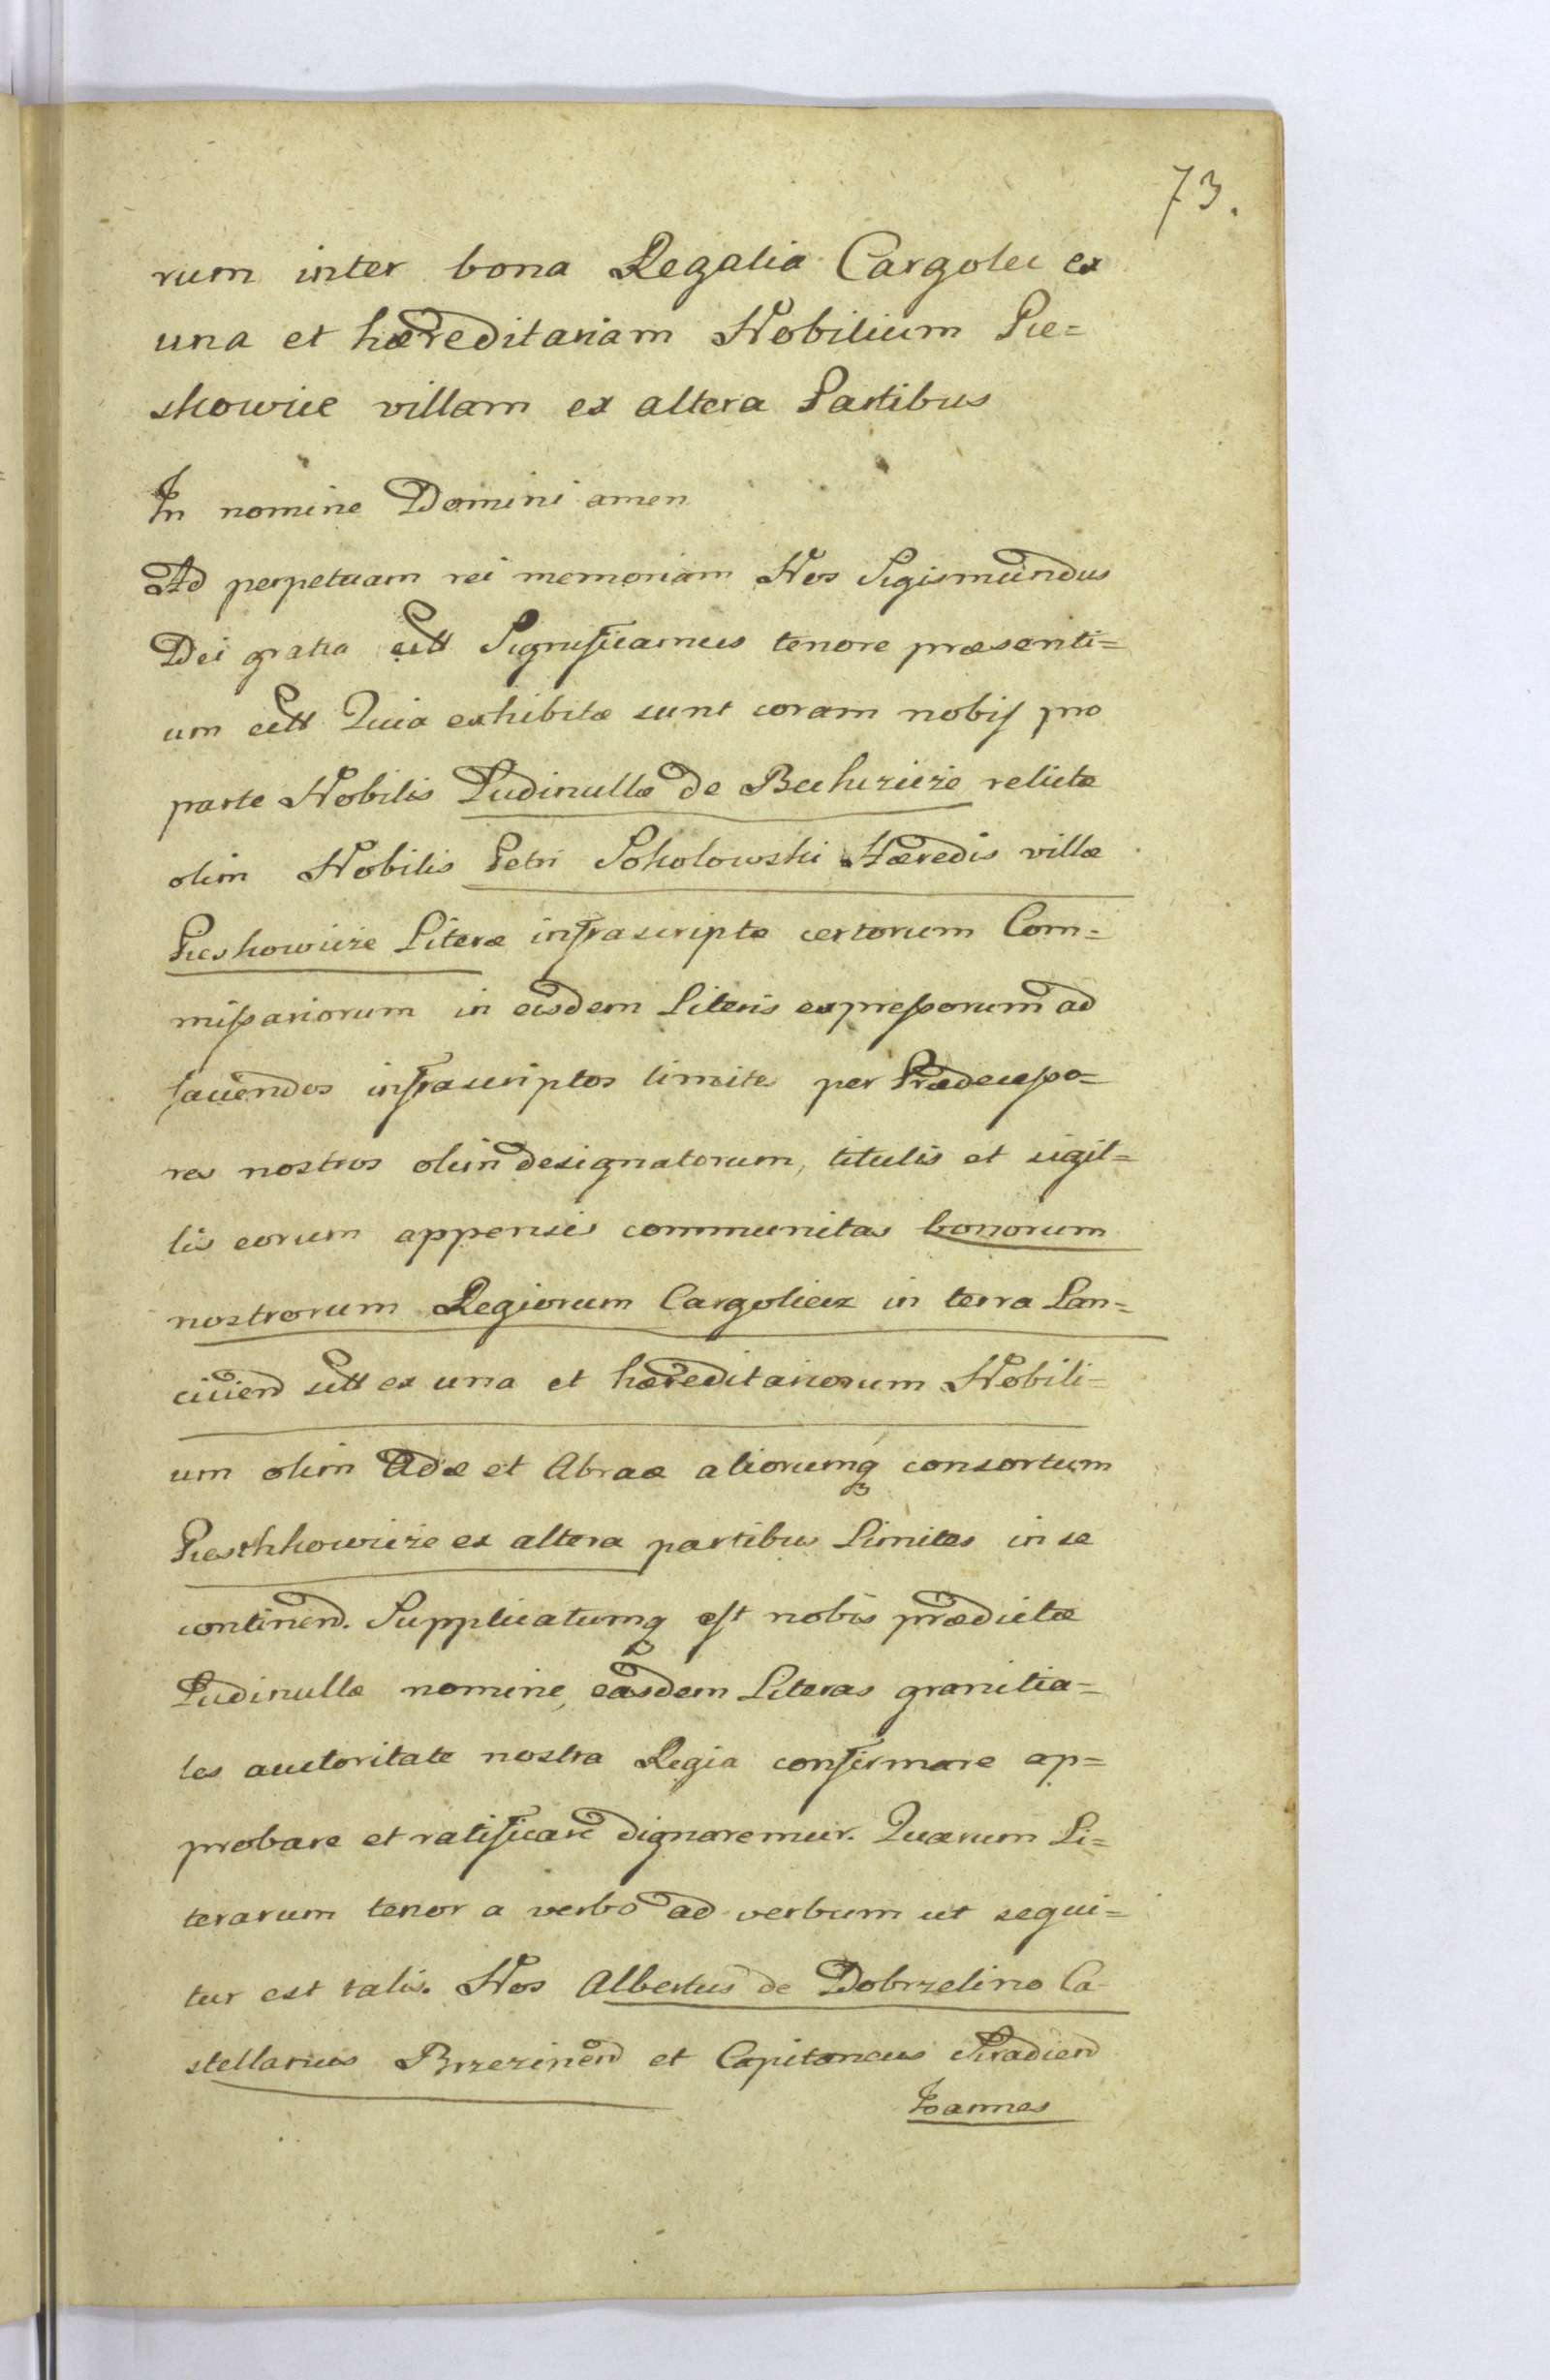 73.
rum inter bona Regalia Cargolec ex
una et hæreditariam Nobilium Pie=
skowice villam ex altera Partibus
In nomine Domini amen
Ad perpetuam rei memoriam Nos Sigismundus
Dei gratia ett Significamus tenore præsenti=
um ett Quia exhibitæ sunt coram nobis pro
parte Nobilis Ludinullæ de Bechczicze relictæ
olim Nobilis Petri Sokolowski Hæredis villæ
Pieskowicze Literæ infrascriptæ certorum Com=
missariorum in eisdem Literis expressorum ad
faciendos infrascriptos limites per Prædecesso=
res nostros olim designatorum, titulis et sigil=
lis eorum appensis communitas bonorum
nostrorum Regiorum Cargoliecz in terra Lan=
ciciend sitt ex una et hæreditariorum Nobili=
um olim Adæ et Abraæ aliorumq consortum
Piesthkowicze ex altera partibus Limites in se
continend. Supplicatumq est nobis prædictæ
Ludinullæ nomine, easdem Literas granitia=
les auctoritate nostra Regia confirmare ap=
probare et ratificare dignaremur. Quarum Li=
terarum tenor a verbo ad verbum ut sequi=
tur est talis. Nos Albertus de Dobrzelino Ca-
stellanus Brzezinend et Capitaneus Siradiend
Ioannes